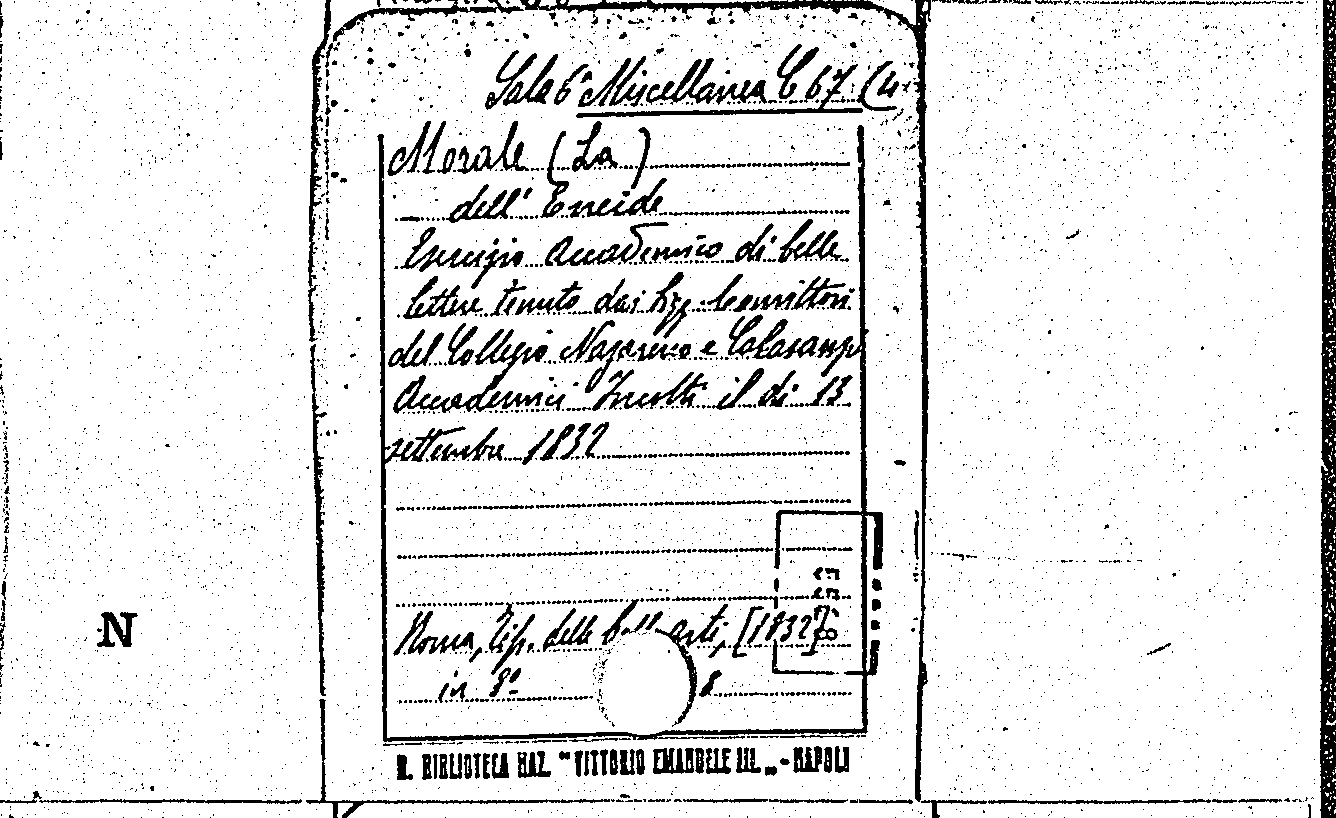 Sala 6ª Miscellanea C 67 (4
Morale (La)
dell' Eneide
Esercizio Accademico di belle
lettere tenuto dai Sigg. Convittori
del Collegio Nazareno e Calasanzi
Accademici Incolti il dì 13
settembre 1832
N
Roma, Tip. delle belle arti, [1832]
in 8º 8
R. BIBLIOTECA NAZ. "VITTORIO EMANUELE III." - NAPOLI